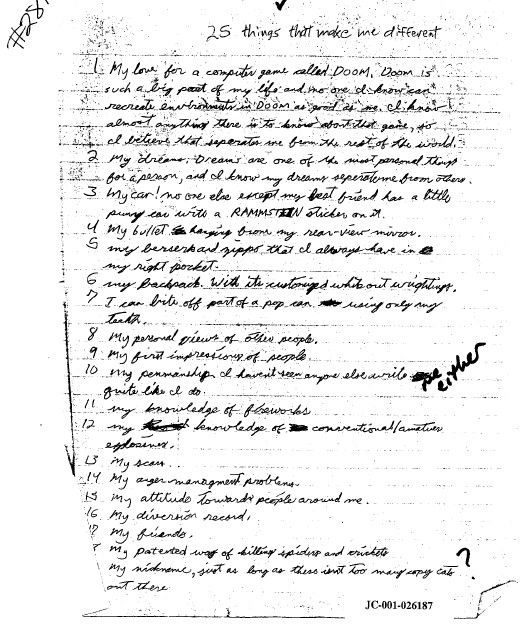 #28
25 things that make me different
1 My love for a computer game called DOOM. Doom is
such a big part of my life and no one I know can
recreate environments in DOOM as good as me. I know
almost anything there is to know about that game, so
I believe that separates me from the rest of the world.
2 My dreams. Dreams are one of the most personal things
for a person, and I know my dreams seperate me from others.
3 My car! no one else except my best friend has a little
car with a RAMMSTEIN sticker on it.
4 My bullet hanging from my rear-view mirror.
5 my berserk and zippo that I always have in
my right pocket.
6 my backpack. With its customized white out wrightings.
7 I can bite off part of a pop can using only my
teeth.
8 My personal views of other people.
9 My first impressions of people.
10 my penmanship I haven't seen anyone else write
quite like I do.
me either
11 my knowledge of fireworks
12 my knowledge of conventional/
explosives.
13 My scar.
14 My anger managment problems.
15 My attitude towards people around me.
16 My diversion record.
17 My friends.
My patented way of killing spiders and crickets
My nickname, just as long as theres isnt too many copy cats ?
out there
JC-001-026187